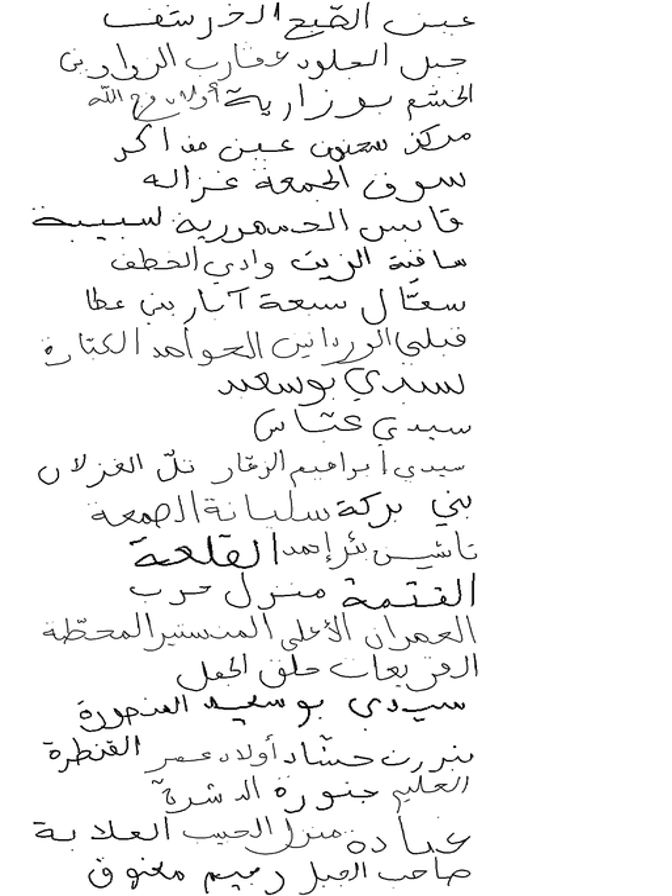 عين الضبع الخرشف
جبل الجلود عقارب الرواد بني
الخشم بوزارية أولاد فرج الله
مركز سحنون عين مذاكر
سوق الجمعة غزالة
قابس الجمهورية سبيبة
ساقية الزيت وادي الخطف
سعّال سبعة آبار بني عطا
قبلي الوردانين الحوامد الكتارة
سيدي بوسعيد
سيدي عبّاس
سيدي ابراهيم الزهّار تلّ الغزلان
بني بركة سليانة الصمعة
تاشين بئر إحمد القلعة
القتمة منزل حرب
العمران الأعلى المنستير المحطّة
المريعات حلق الجمل
سيدي بوسعيد المنصورة
بنزرت حشّاد أولاد عمر القنطرة
العليم جنورة الدشرة
عبادة منزل الحبيب العلابة
صاحب الجبل رميم معتوق